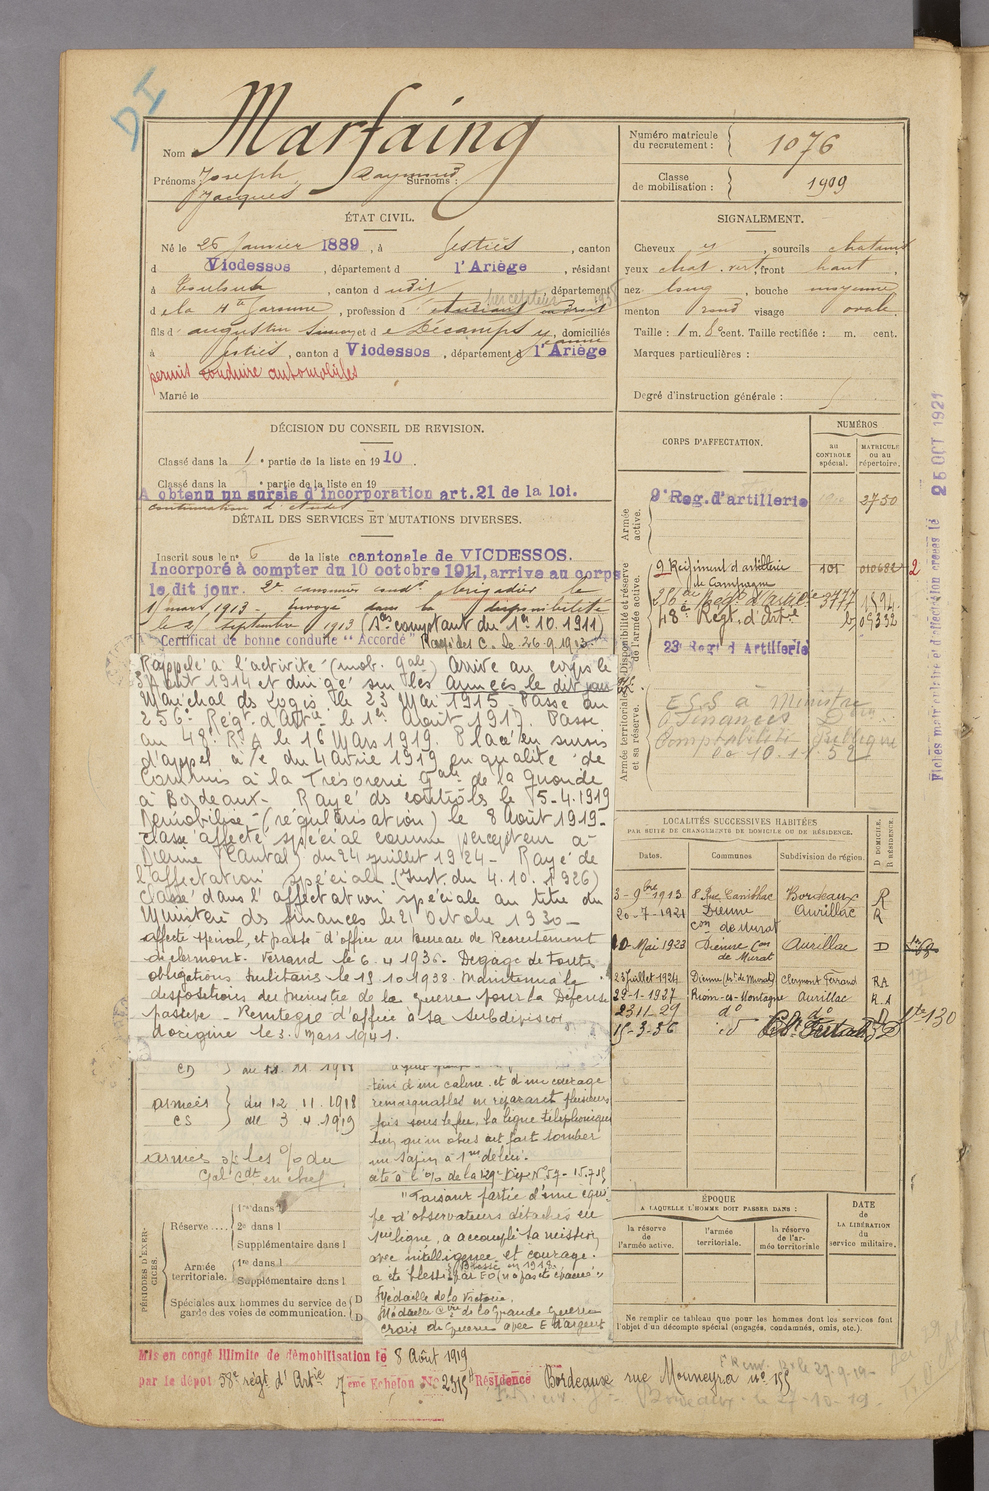 DI
Nom Marfaing
Prénoms : Joseph, Raymond Surnoms :
Jacques
Numéro matricule du recrutement : 1076
Classe de mobilisation : 1909
ÉTAT CIVIL.
Né le 26 Janvier 1889, à Gestiès, canton
d Vicdessos, département d l'Ariège, résidant
à Toulouse, canton d udit, département
d e la Hte Garonne, profession d étudiant en droit
percepteur
fils d' augustin Simon et d e Décamps Jeanne, domiciliés
à Gestiès, canton d Vicdessos, département d l'Ariège
permis conduire automobiles
Marié le
SIGNALEMENT.
Cheveux et, sourcils chatains
yeux chat. vert, front haut,
nez long, bouche moyenne
menton rond visage ovale.
Taille : 1 m. cent. Taille rectifiée : m. cent.
Marques particulières :
Degré d'instruction générale :
DÉCISION DU CONSEIL DE REVISION.
Classé dans la 1e partie de la liste en 1910.
Classé dans la e partie de la liste en 19
A obtenu un sursis d'incorporation art.21 de la loi.
continuation d'études
DÉTAIL DES SERVICES ET MUTATIONS DIVERSES.
Inscrit sous le n° 6 de la liste cantonale de VICDESSOS.
Incorporé à compter du 10 octobre 1911, arrive au corps
le dit jour. 2e canonnier condr brigadier le
1 mars 1913 - Envoyé dans la disponibilité
le 25 septembre 1913 (1es comptant du 1er 10.1911)
Certificat de bonne conduite "Accordé" Rayé des C. le 26.9.1913.
Rappelé à l'activité (mob. Gale) Arrivé au corps le
3 Août 1914 et dirigé sur les Armées le dit jour.
Maréchal des logis le 23 Mai 1915. Passé au
256e Régt. d'Artie le 1er Août 1917. Passé
au 48e R.A le 16 Mars 1919. Placé en sursis
d'appel a/c du 4 Avril 1919 en qualité de
Commis à la Trésorerie Gale de la Gironde
à Bordeaux - Rayé ds contrôls le 5-4.1919
Démobilisé - (régularisation) le 8 Août 1919-
Classé affecté spécial comme percepteur à
Dienne (Cantal) du 24 juillet 1924 - Rayé de
l'affectation spéciale (Inst. du 4.10.1926)
Classé dans l'affectation spéciale au titre du
Ministre ds finances le 21 Octobre 1930 -
affecté spécial, et passé d'office au Bureau de Recrutement
de Clermont-Ferrand le 6.4.1936. Dégagé de toutes
obligations militaires le 15.10.1938. Maintenu à la
disposition du Ministre de la guerre pour la Défense
passive - Réintégré d'office à sa subdivision
d'origine le 3. Mars 1941.
CD } au 11 11 1918
armées } du 12.11.1918
CS } au 3 4 1919
armes s/s les % du
Gal Cdt en chef
d'un calme et d'un courage
remarquables en réparant plusieurs
fois sous le feu, la ligne téléphonique
bien qu'un obus ait fait tomber
un sapin à 1m de lui.
cité à l'% de la 129e Don N°57 - 15.7.15
"Faisant partie d'une équi-
pe d'observateurs détachés en
1ère ligne, a accompli sa mission
avec intelligence et courage.
Blessé en 1918
a été blessé par EO (n'a pas été évacué)"
Médaille de la Victoire.
Médaille Cve de la Grande Guerre
Croix de Guerre avec E d'argent
PÉRIODES D'EXERCICES.
Réserve ....
1re dans l
2e dans l
Supplémentaire dans l
Armée territoriale.
1re dans l
Supplémentaire dans l
Spéciales aux hommes du service de garde des voies de communication.
D
D
CORPS D'AFFECTATION.
NUMÉROS
AU CONTROLE spécial.
MATRICULE OU AU répertoire.
Armée active.
9e Reg. d'artillerie 2750
Disponibilité et réserve de l'armée active.
9 Régiment d'artillerie de Campagne 101 010682 2
256e Regt d'Artie 3777 1594
48e Regt. d'Arte 09332
23e Regt d'Artillerie
Armée territoriale et sa réserve.
E.S.S à Ministre
Finances
Comptabilité Publique
10.11.52
Fiches matriculaire et d'affectation créées le 25 OCT 1921
LOCALITÉS SUCCESSIVES HABITÉES
PAR SUITE DE CHANGEMENTS DE DOMICILE OU DE RÉSIDENCE.
Dates. Communes Subdivision de région. D DOMICILE. R RÉSIDENCE.
3-9bre 1913 8 Rue Canihac Bordeaux R
20-7-1921 Dienne Con de Murat Aurillac R
10 Mai 1923 Dienne Con de Murat Aurillac D
25 Juillet 1924 Dienne (Con de Murat) Clermont Ferrand RA
22-1-1937 Riom-es-Montagne Aurillac R.A
23 11-29 do do D
15-3-36 id Clt Ferrand D
ÉPOQUE
A LAQUELLE L'HOMME DOIT PASSER DANS :
la réserve de l'armée active.
l'armée territoriale.
la réserve de l'armée territoriale
DATE de LA LIBÉRATION du service militaire.
Ne remplir ce tableau que pour les hommes dont les services font l'objet d'un décompte spécial (engagés, condamnés, omis, etc.).
Mis en congé illimité de démobilisation le 8 Août 1919
par le dépôt 58e régt d'Artie 7ème Echelon N° 2315 Résidence Bordeaux rue Mouneyra n° 155
le 27-9-19-
Bordeaux le 27-10-19.